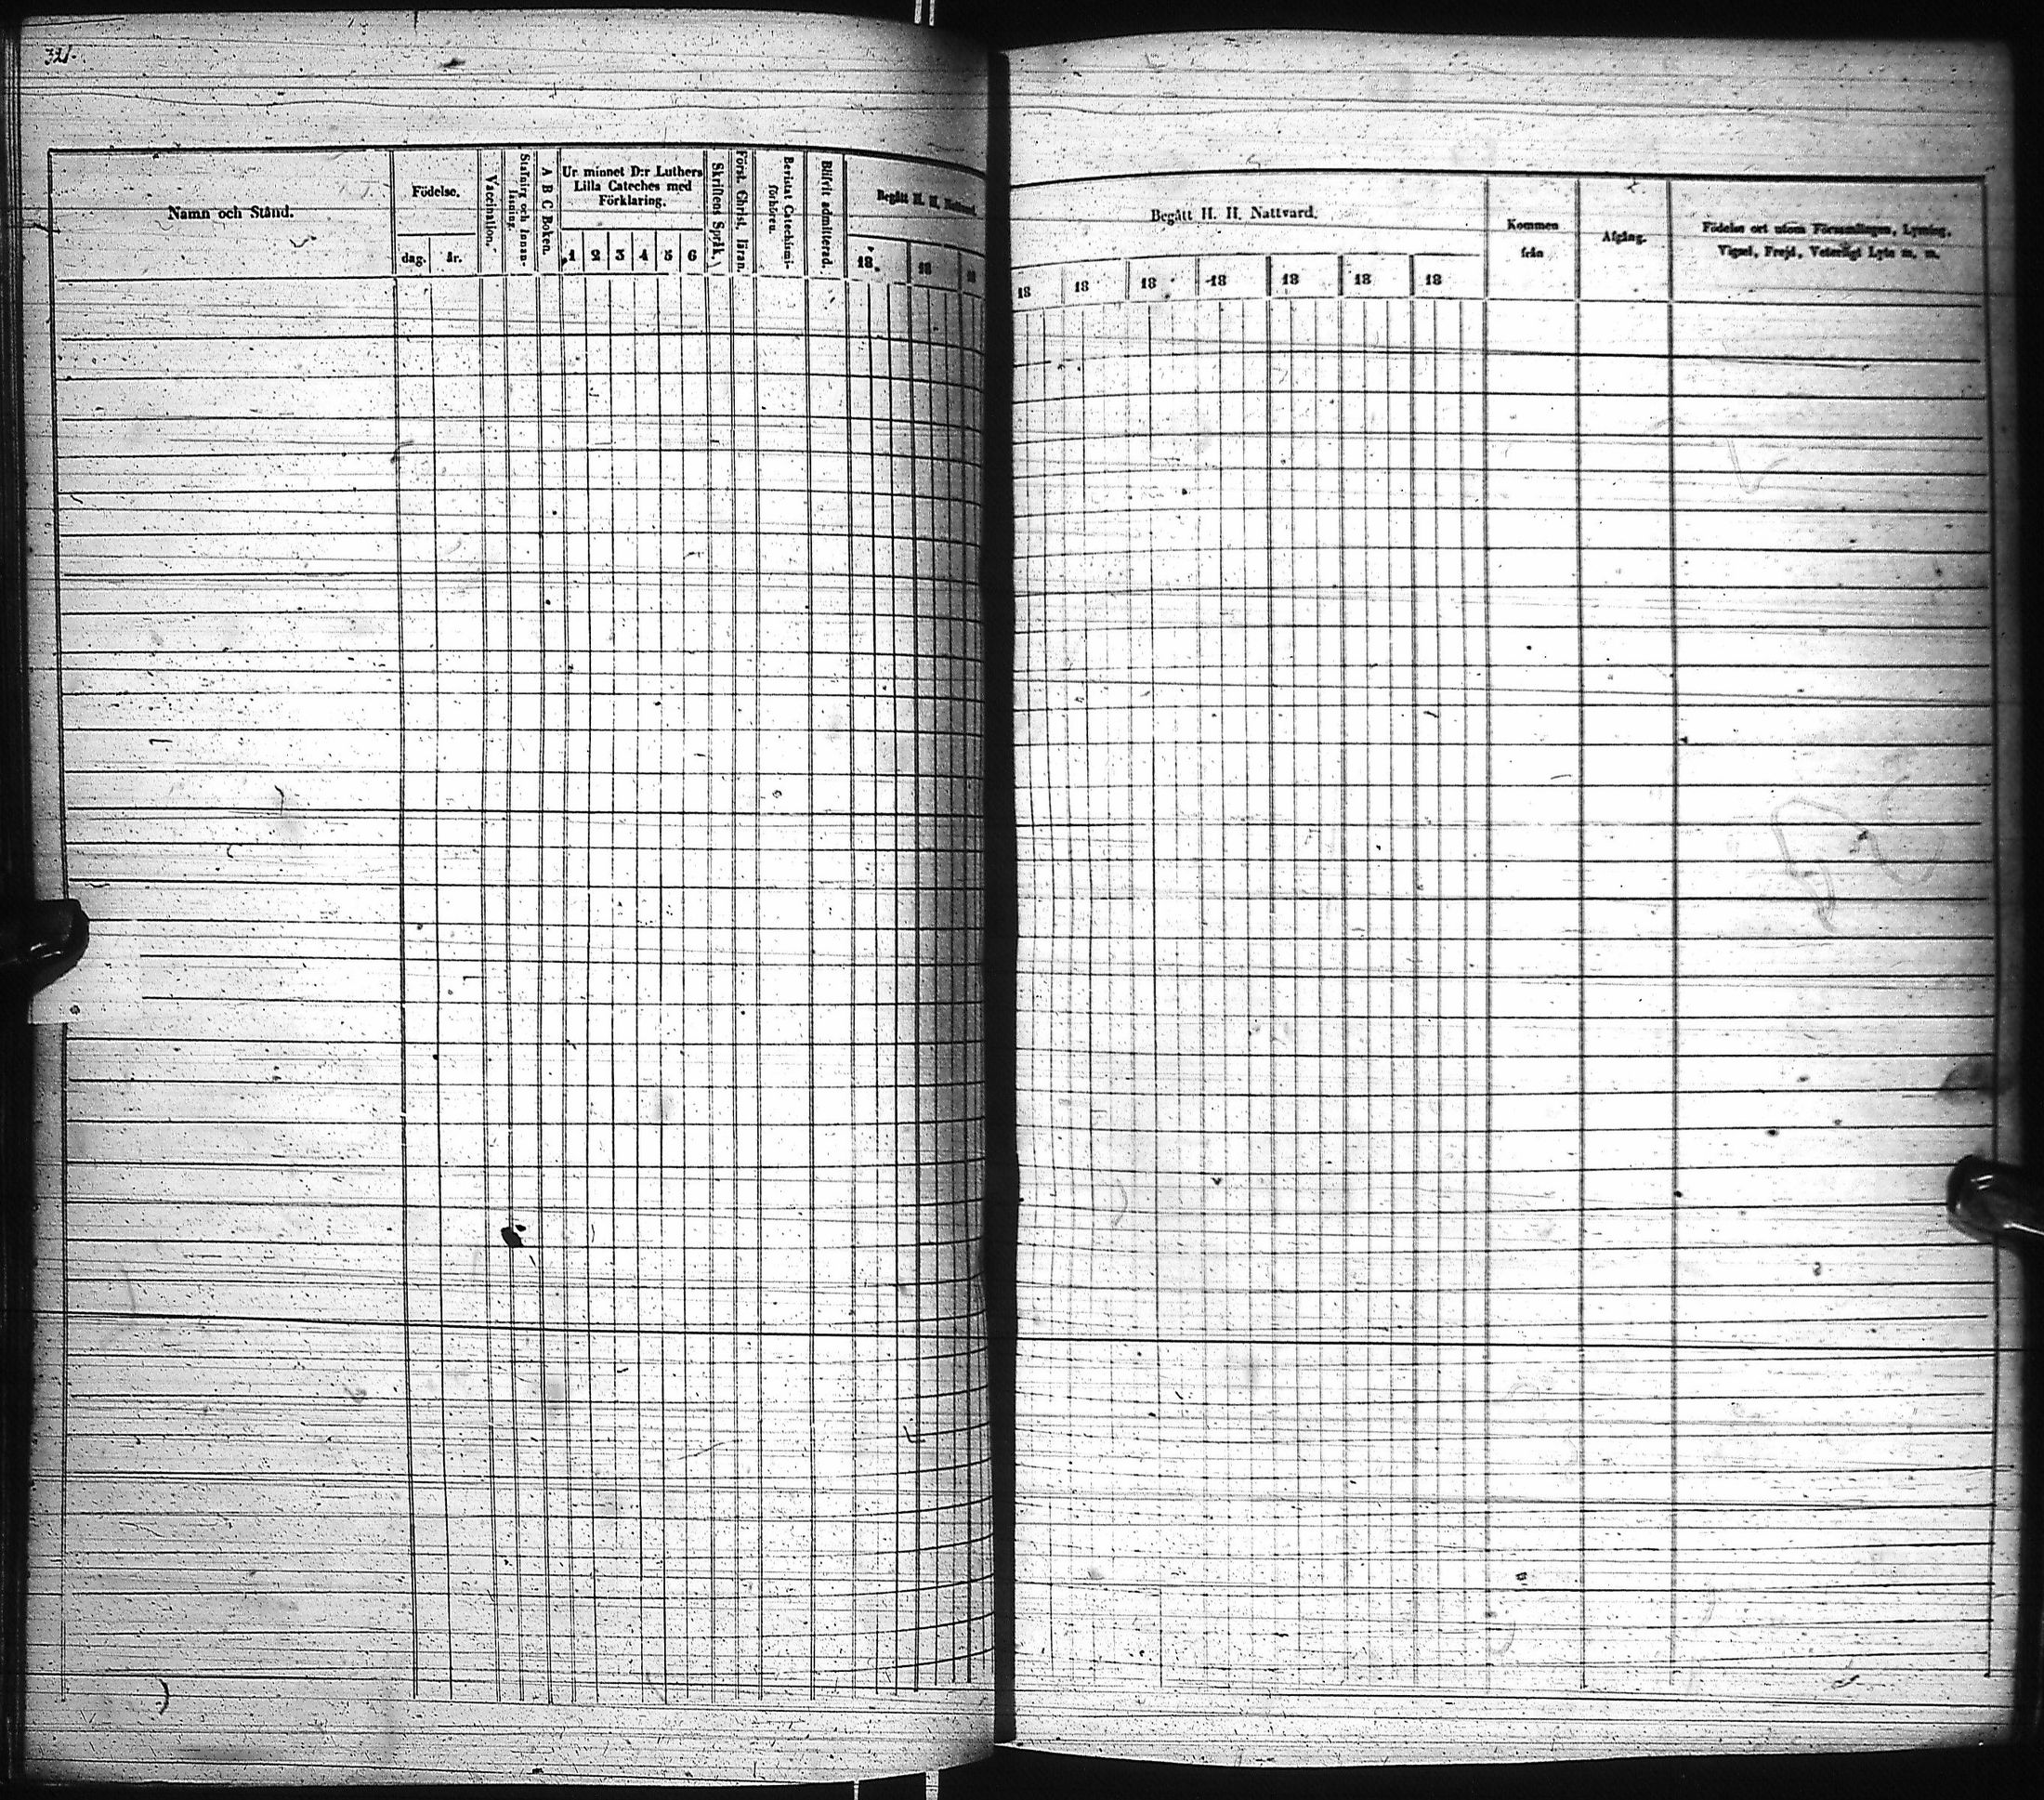 321.
Namn och Stånd.
Födelse.
dag.
år.
Vaccination.
Stafning och Innan-
läsning.
A B C Boken.
Ur minnet D:r Luthers
Lilla Cateches med
Förklaring.
1 2 3 4 5 6
Skriftens Språk.
Först. Christ. läran.
Bevistat Catechismi-
förhören.
Blifvit admitterad.
Begått H. H. Nattvard.
18 18 18
Begått H. H. Nattvard.
18 18 18 18 18 18 18
Kommen
från
Afgång.
Födelse ort utom Församlingen, Lysning,
Vigsel, Frejd, Veterligt Lyte m. m.